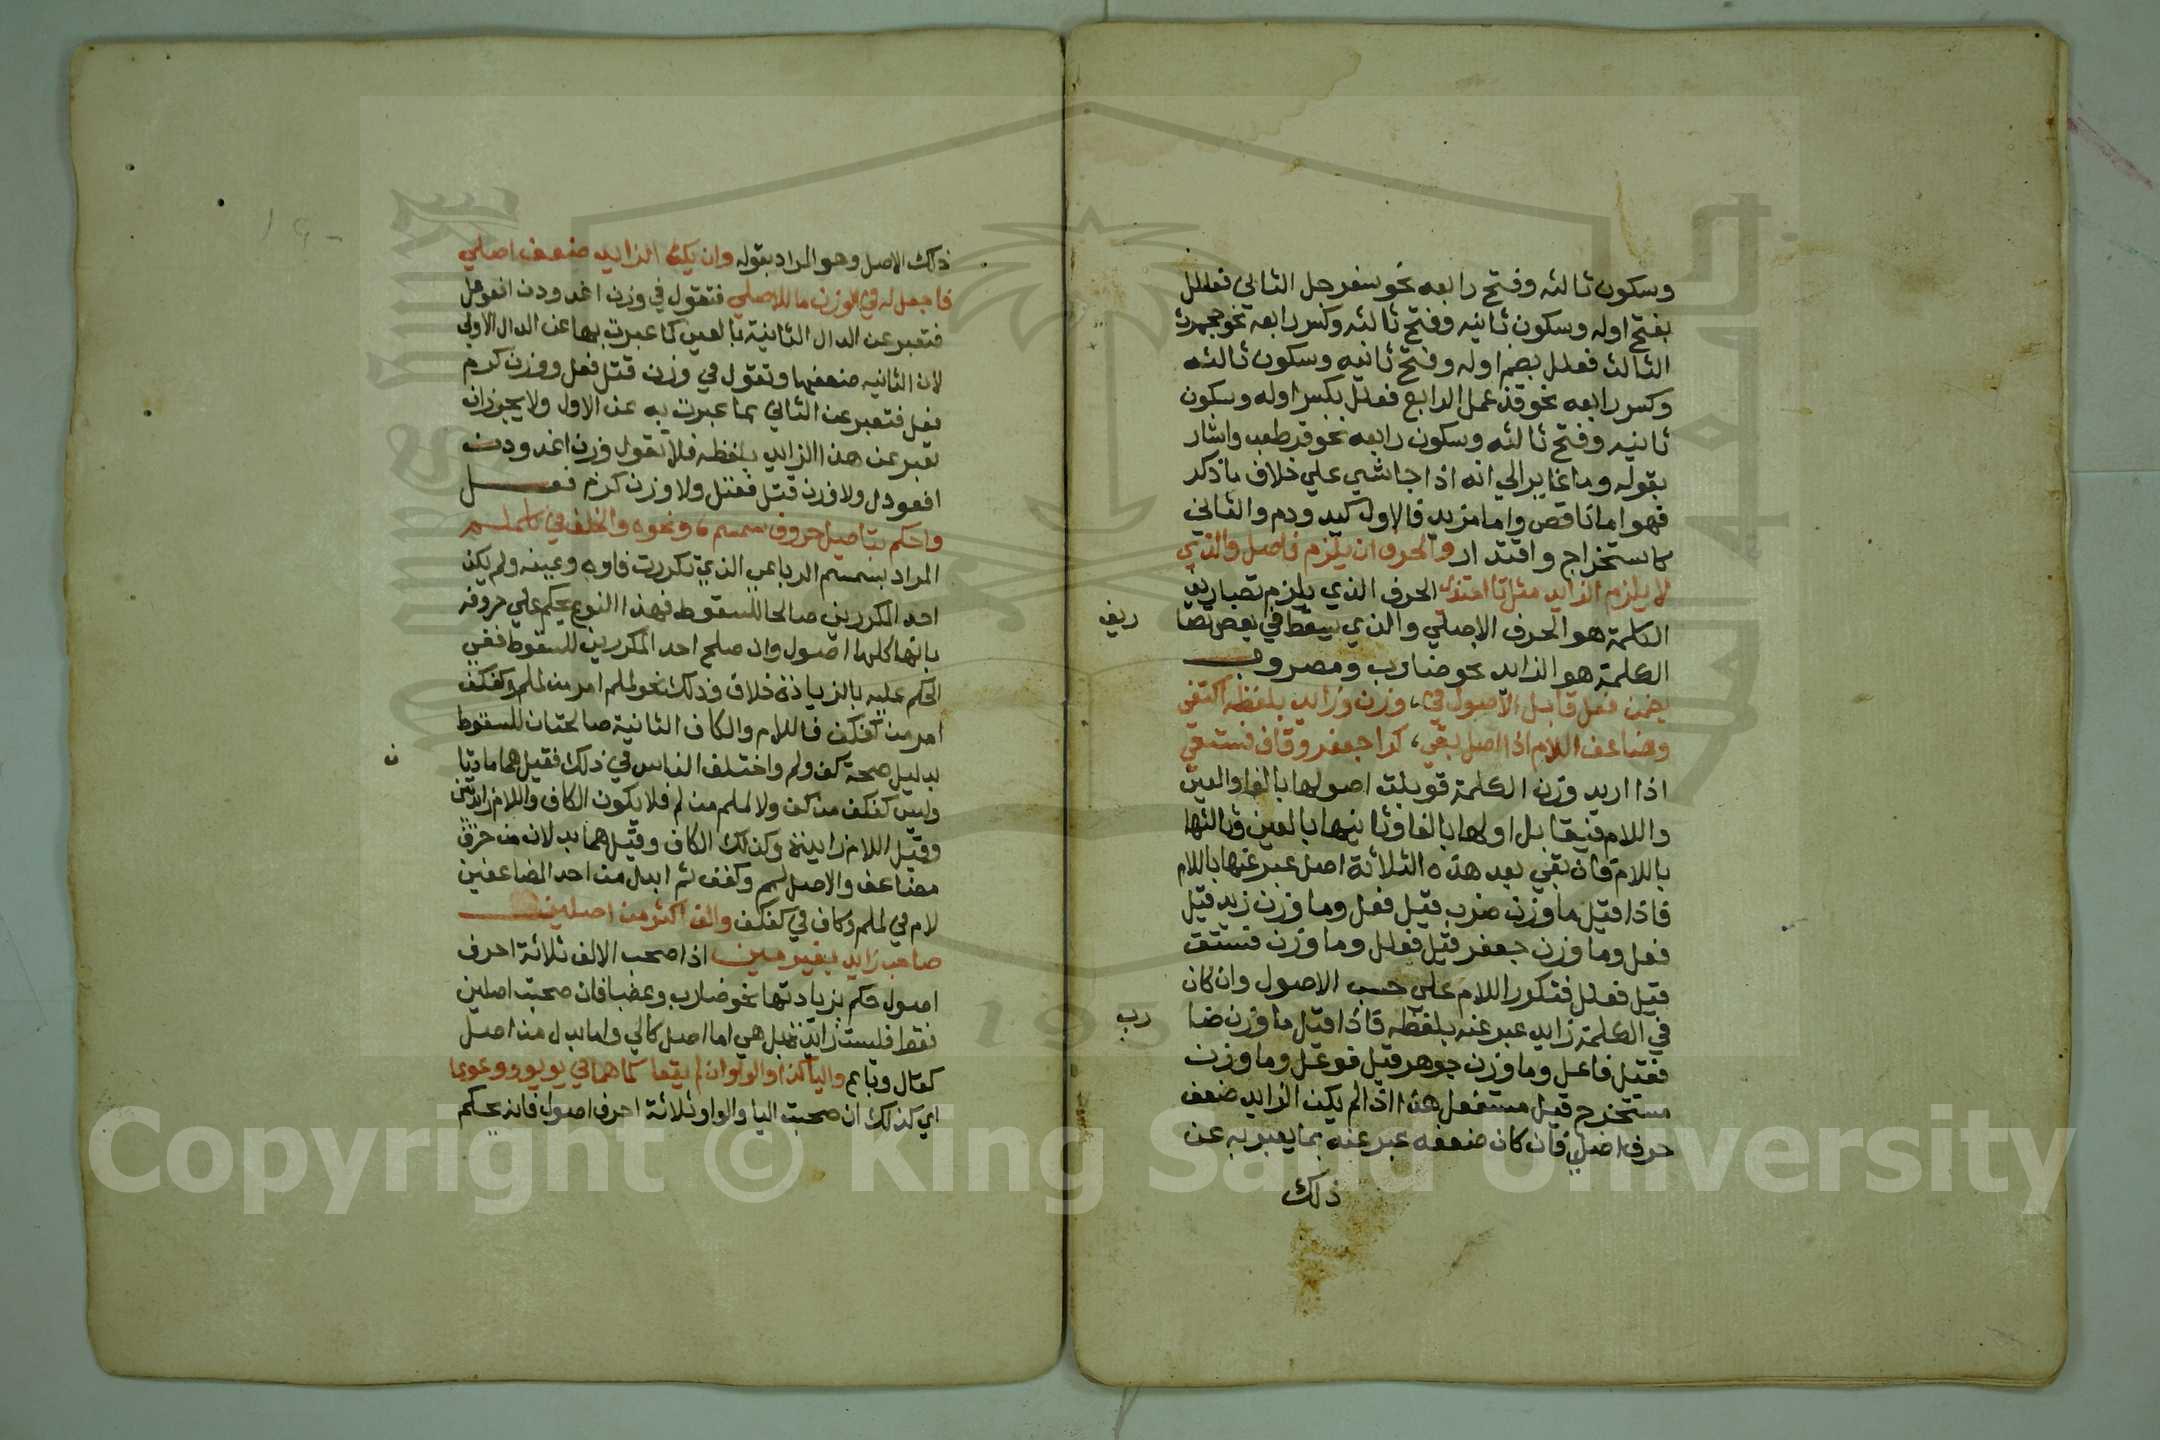 وسكون ثالثه وفتح رابعه نحو سفرجل الثاني فعلل
بفتح اوله وسكون ثانيه وفتح ثالثه وكسر رابعه نحو جحمرش
الثالث فعلل بضم اوله وفتح ثانيه وسكون ثالثه
وكسر رابعه نحو قذعمل الرابع فعلل بكسر اوله وسكون
ثانيه وفتح ثالثه وسكون رابعه نحو قرطعب واشار
بقوله وما غاير الي انه اذا جا شي علي خلاف ما ذكر
فهو اما ناقص واما مزيد فالاول كيد ودم والثاني
كاستخراج واقتدار والحرف ان يلزم فاصل والذي
لا يلزم الزايد مثل تا احتذي الحرف الذي يلزم تصاريف
الكلمة هو الحرف الاصلي والذي يسقط في بعض تصا
ريف
الكلمة هو الزايد نحو ضارب ومضروب
بضمن فعل قابل الاصول في، وزن وزايد بلفظه اكتفي
وضاعف اللام اذا اصل بقي، كرا جعفر وقاف فستقي
اذا اريد وزن الكلمة قوبلت اصولها بالفا والعين
واللام فيقابل اولها بالفا وثانيها بالعين وثالثها
باللام فان بقي بعد هذه الثلاثة اصل عبر عنها باللام
فاذا قيل ما وزن ضرب قيل فعل وما وزن زيد قيل
فعل وما وزن جعفر قيل فعلل وما وزن فستق
قيل فعلل فتكرر اللام علي حسب الاصول وان كان
في الكلمة زايد عبر عنه بلفظه فاذا قيل ما وزن ضا
رب
فقيل فاعل وما وزن جوهر قيل فوعل وما وزن
مستخرج قيل مستفعل هذا اذا لم يكن الزايد ضعف
حرف اصلي فان كان ضعفه عبر عنه بما يعبر به عن
ذلك
ذلك الاصل وهو المراد بقوله وان يك الزايد ضعف اصلي
فاجعل له في الوزن ما للاصلي فتقول في وزن اغدودن افعوعل
فتعبر عن الدال الثانية بالعين كما عبرت بها عن الدال الاولي
لان الثانيه ضعفها وتقول في وزن قتل فعل ووزن كرم
فعل فتعبر عن الثاني بما عبرت به عن الاول ولا يجوز ان
يعبر عن هذا الزايد بلفظه فلا تقول وزن اغدودن
افعودل ولا وزن قتل فعتل ولا وزن كرم فعرل
واحكم بتاصيل حروف سمسم، ونحوه والخلف في كلملم
المراد بسمسم الرباعي الذي تكررت فاوه وعينه ولم يكن
احد المكررين صالحا للسقوط فهذا النوع يحكم علي حروفه
بانها كلها اصول وان صلح احد المكررين للسقوط ففي
الحكم عليه بالزيادة خلاف وذلك نحو لملم امر من لملم وكفكف
امر من كفكف فاللام والكاف الثانية صالحتان للسقوط
بدليل صحة كف ولم واختلف الناس في ذلك فقيل هما مادتا
ن
وليس كفكف من كف ولا لملم من لم فلا يكون الكاف واللام زايدتين
وقيل اللام زايدة وكذلك الكاف وقيل هما بدلان من حرف
مضاعف والاصل لمم وكفف ثم ابدل من احد المضاعفين
لام في لملم وكاف في كفكف والف اكثر من اصلين
صاحب زايد بغير مين اذا صحب الالف ثلاثة احرف
اصول حكم بزيادتها نحو ضارب وعضبا فان صحبت اصلين
فقط فليست زايدة بل هي اما اصل كالي واما بدل من اصل
كقال وباع واليا كذا والواو ان لم يقعا كما هما في يويو ووعوعا
اي كذلك ان صحبت اليا والواو ثلاثة احرف اصول فانه يحكم
Copyright © King Saud University